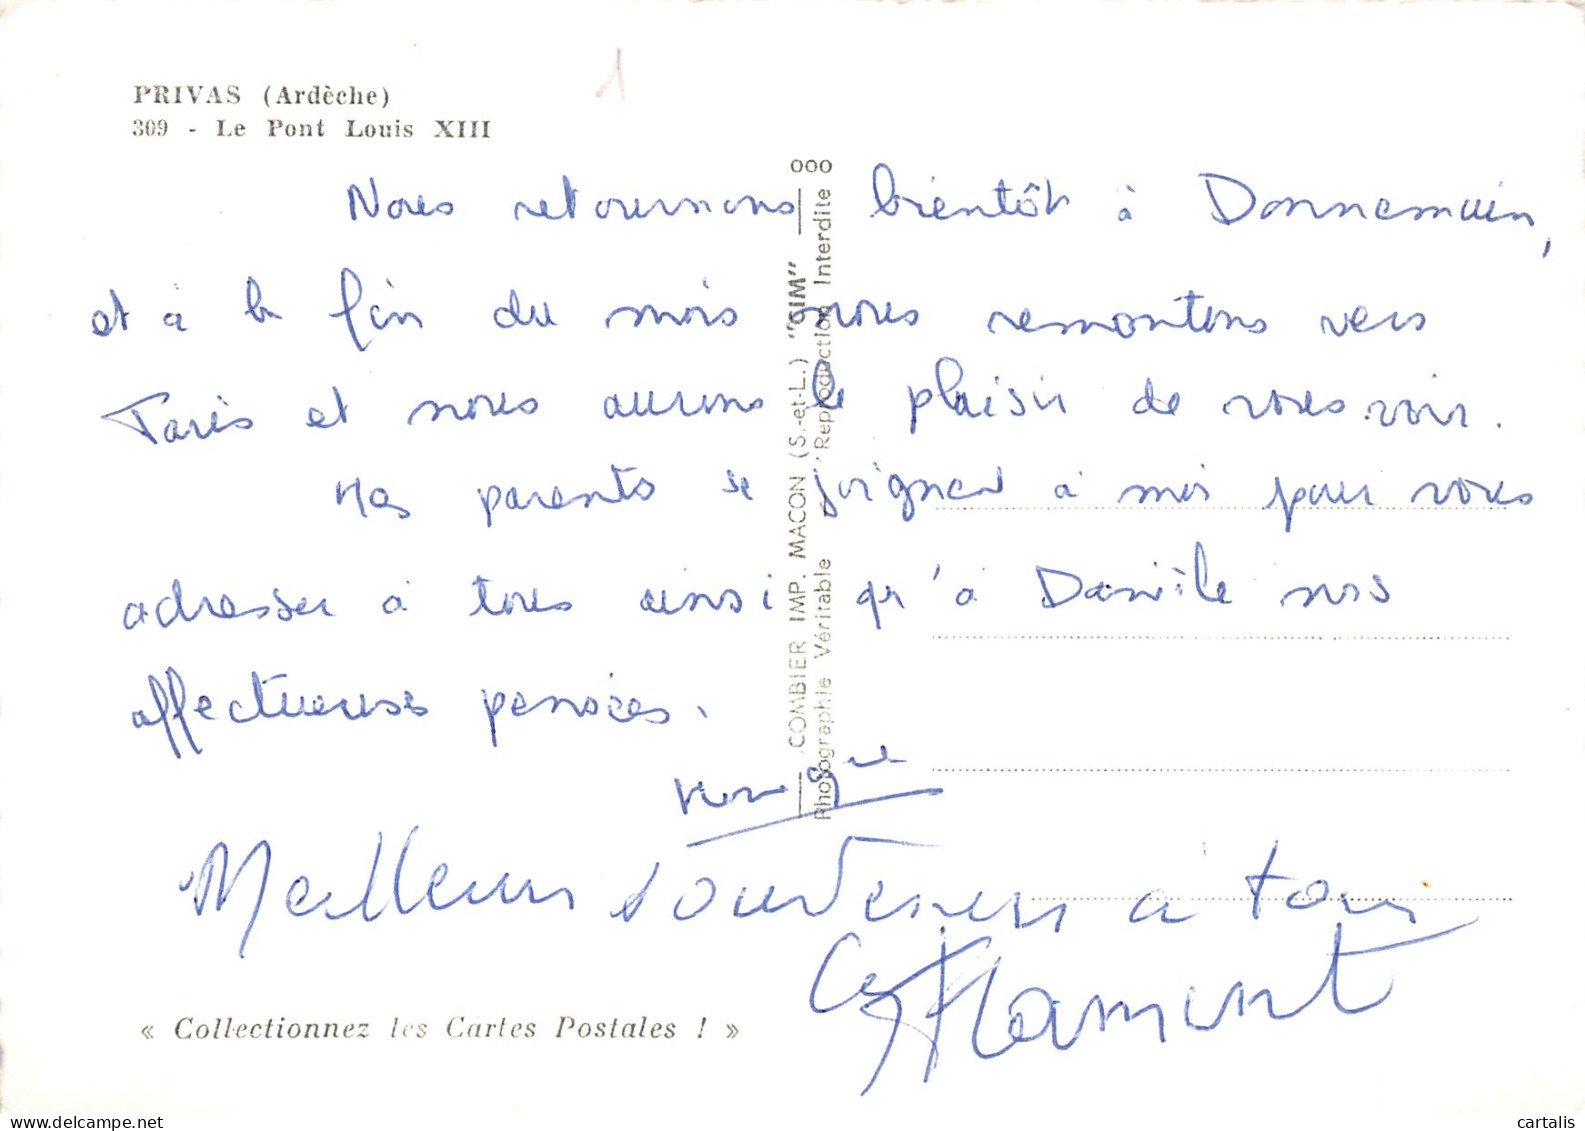 1
PRIVAS (Ardèche)
309 - Le Pont Louis XIII
Nous retournons bientôt à Donnemain,
et à la fin du mois nous remontons vers
Paris et nous aurons le plaisir de vous voir.
Mes parents se joignent à moi pour vous
adresser à tous ainsi qu'à Danièle nos
affectueuses pensées.
Monique
Meilleurs souvenirs a tous
Flament
« Collectionnez les Cartes Postales ! »
COMBIER IMP. MACON (S.-et-L.) "CIM"
Photographie Véritable - Reproduction Interdite
000
www.delcampe.net
cartalis